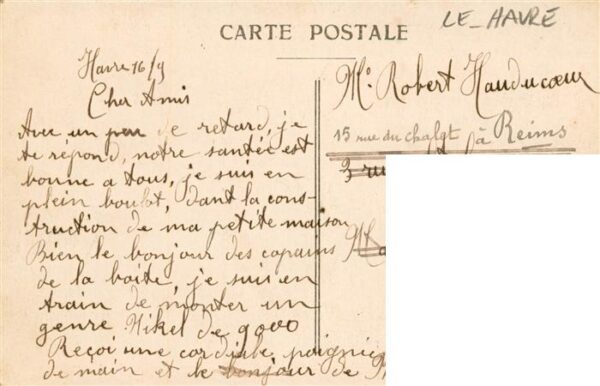 CARTE POSTALE
LE-HAVRE
Havre 16/9
Cher Amis
Avec un peu de retard, je
te répond, notre santée est
bonne a tous, je suis en
plein boulot, dant la cons-
truction de ma petite maison
Bien le bonjour des copains
de la boite, je suis en
train de monter un
genre Nikel de
Reçoi une cordiale poignie
de main et le bonjour de
Mr Robert Hauducoeur
15 rue du chalet à Reims
3 rue